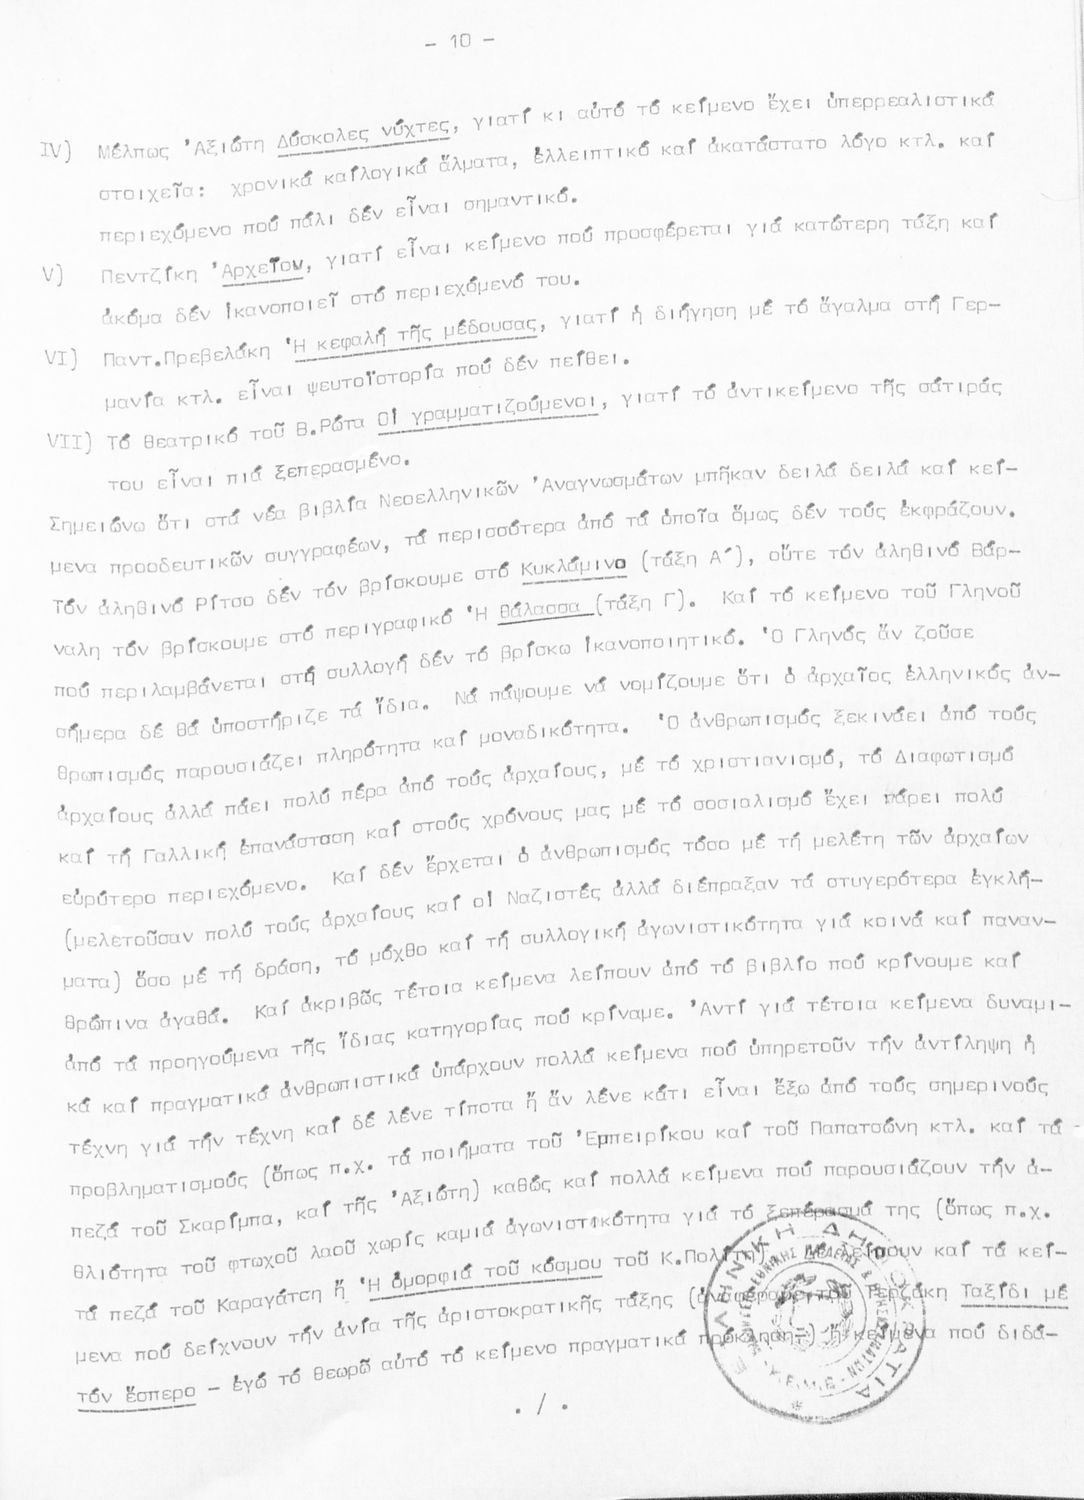 - 10 -
IV) Μέλπως Ἀξιώτη Δύσκολες νύχτες, γιατί κι αὐτό τό κείμενο ἔχει ὑπερρεαλιστικά
στοιχεῖα: χρονικά καίλογικά ἄλματα, ἐλλειπτικό καί ἀκατάστατο λόγο κτλ. καί
περιεχόμενο πού πάλι δέν εἶναι σημαντικό.
V) Πεντζίκη Ἀρχεῖον, γιατί εἶναι κείμενο πού προσφέρεται γιά κατώτερη τάξη καί
ἀκόμα δέν ἱκανοποιεῖ στό περιεχόμενό του.
VI) Παντ.Πρεβελάκη Ἡ κεφαλή τῆς μέδουσας, γιατί ἡ διήγηση μέ τό ἄγαλμα στή Γερ-
μανία κτλ. εἶναι ψευτοϊστορία πού δέν πείθει.
VII) Τό θεατρικό τοῦ Β.Ρώτα Οἱ γραμματιζούμενοι, γιατί τό ἀντικείμενο τῆς σάτιράς
του εἶναι πιά ξεπερασμένο.
Σημειώνω ὅτι στά νέα βιβλία Νεοελληνικῶν Ἀναγνωσμάτων μπῆκαν δειλά δειλά καί κεί-
μενα προοδευτικῶν συγγραφέων, τά περισσότερα ἀπό τά ὁποῖα ὅμως δέν τούς ἐκφράζουν.
Τόν ἀληθινό Ρίτσο δέν τόν βρίσκουμε στό Κυκλάμινο (τάξη Α΄), οὔτε τόν ἀληθινό Βάρ-
ναλη τόν βρίσκουμε στό περιγραφικό Ἡ θάλασσα (τάξη Γ). Καί τό κείμενο τοῦ Γληνοῦ
πού περιλαμβάνεται στή συλλογή δέν τό βρίσκω ἱκανοποιητικό. Ὁ Γληνός ἄν ζοῦσε
σήμερα δέ θά ὑποστήριζε τά ἴδια. Νά πάψουμε νά νομίζουμε ὅτι ὁ ἀρχαῖος ἑλληνικός ἀν-
θρωπισμός παρουσιάζει πληρότητα καί μοναδικότητα. Ὁ ἀνθρωπισμός ξεκινάει ἀπό τούς
ἀρχαίους ἀλλά πάει πολύ πέρα ἀπό τούς ἀρχαίους, μέ τό χριστιανισμό, τό Διαφωτισμό
καί τή Γαλλική ἐπανάσταση καί στούς χρόνους μας μέ τό σοσιαλισμό ἔχει πάρει πολύ
εὐρύτερο περιεχόμενο. Καί δέν ἔρχεται ὁ ἀνθρωπισμός τόσο μέ τή μελέτη τῶν ἀρχαίων
(μελετοῦσαν πολύ τούς ἀρχαίους καί οἱ Ναζιστές ἀλλά διέπραξαν τά στυγερότερα ἐγκλή-
ματα) ὅσο μέ τή δράση, τό μόχθο καί τή συλλογική ἀγωνιστικότητα γιά κοινά καί παναν-
θρώπινα ἀγαθά. Καί ἀκριβῶς τέτοια κείμενα λείπουν ἀπό τό βιβλίο πού κρίνουμε καί
ἀπό τά προηγούμενα τῆς ἴδιας κατηγορίας πού κρίναμε. Ἀντί γιά τέτοια κείμενα δυναμι-
κά καί πραγματικά ἀνθρωπιστικά ὑπάρχουν πολλά κείμενα πού ὑπηρετοῦν τήν ἀντίληψη ἡ
τέχνη γιά τήν τέχνη καί δέ λένε τίποτα ἤ ἄν λένε κάτι εἶναι ἔξω ἀπό τούς σημερινούς
προβληματισμούς (ὅπως π.χ. τά ποιήματα τοῦ Ἐμπειρίκου καί τοῦ Παπατσώνη κτλ. καί τά
πεζά τοῦ Σκαρίμπα, καί τῆς Ἀξιώτη) καθώς καί πολλά κείμενα πού παρουσιάζουν τήν ἀ-
θλιότητα τοῦ φτωχοῦ λαοῦ χωρίς καμιά ἀγωνιστικότητα γιά τό ξεπέρασμά της (ὅπως π.χ.
τά πεζά τοῦ Καραγάτση ἤ Ἡ ὀμορφιά τοῦ κόσμου τοῦ Κ.Πολίτη). Δέ λείπουν καί τά κεί-
μενα πού δείχνουν τήν ἀνία τῆς ἀριστοκρατικῆς τάξης (ἀναφέρομαι τοῦ Τερζάκη Ταξίδι μέ
τόν ἕσπερο - ἐγώ τό θεωρῶ αὐτό τό κείμενο πραγματικά πρόκληση-) ἤ κείμενα πού διδά-
. / .
ΕΛΛΗΝΙΚΗ ΔΗΜΟΚΡΑΤΙΑ